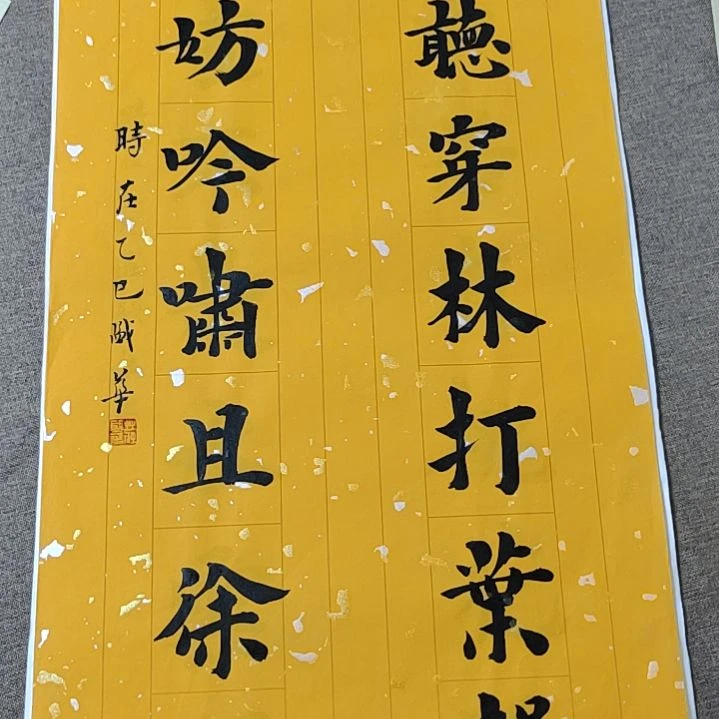 聽穿林打葉
妨吟嘯且徐
時在乙巳華